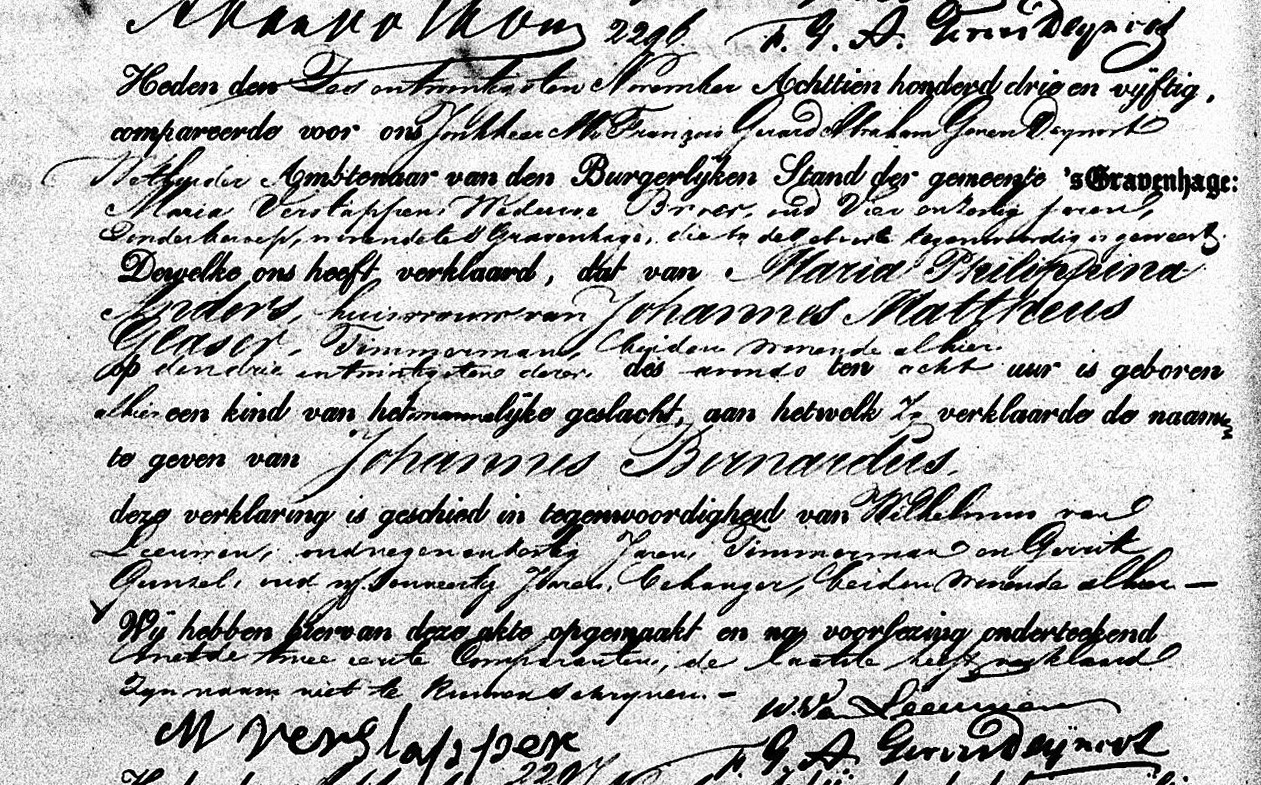 2296. F. G. A. Gevers Deynoot
Heden den Zes en twintigsten November Achttien honderd drie en vijftig,
compareerde voor ons Jonkheer Mr. François Gerard Abraham Gevers Deynoot
Wethouder Ambtenaar van den Burgerlijken Stand der gemeente 's Gravenhage:
Maria Verstappen, Weduwe Broer, oud Vier en zestig jaren,
zonder beroep, wonende te 's Gravenhage, die bij de geboorte tegenwoordig is geweest
Dewelke ons heeft verklaard, dat van Maria Philippina
Anders, huisvrouw van Johannes Mattheus
Glaser, Timmerman, beiden wonende alhier
op den drie en twintigsten dezer des avonds ten acht uur is geboren
alhier een kind van het mannelijke geslacht, aan hetwelk Zij verklaarde de naamen
te geven van Johannes Bernardus.
deze verklaring is geschied in tegenwoordigheid van Wilhelmus van
Leeuwen, oud negen en dertig Jaren, Timmerman en Gerrit
Gunzel, oud Jaren, Behanger, beiden wonende alhier —
Wij hebben hiervan deze akte opgemaakt en na voorlezing onderteekend
met de twee eerste Comparanten, de laatste heeft verklaard
zijn naam niet te kunnen schrijven. —
W. Van Leeuwen
M Verstappen F. G. A. Gevers Deynoot
2297